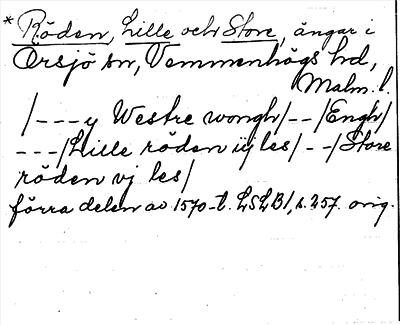 * Röden, Lille och Store, ängar i
Örsjö sn, Vemmenhögs hd,
Malm. l.
/---y Westre wongh/--/Engh/
---/Lille röden iij les/--/Store
röden vj les/
förra delen av 1570-t. LSLB1, s. 257. orig.